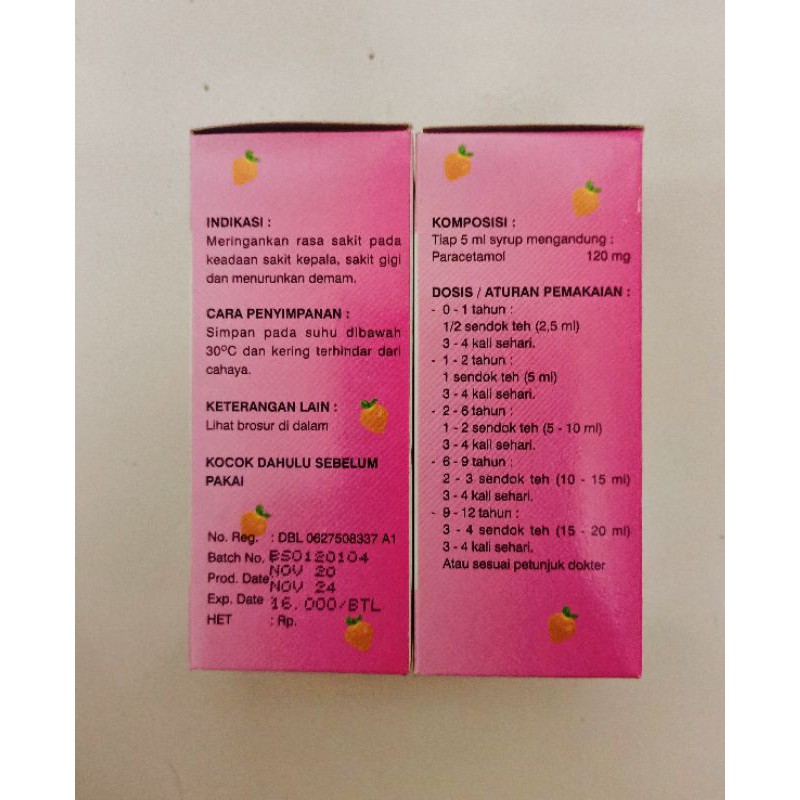 INDIKASI :
Meringankan rasa sakit pada
keadaan sakit kepala, sakit gigi
dan menurunkan demam.
CARA PENYIMPANAN :
Simpan pada suhu dibawah
30°C dan kering terhindar dari
cahaya.
KETERANGAN LAIN :
Lihat brosur di dalam
KOCOK DAHULU SEBELUM
PAKAI
No. Reg. : DBL 0627508337 A1
Batch No. BS0120104
Prod. Date: NOV 20
Exp. Date NOV 24
HET : Rp. 16.000/BTL
KOMPOSISI :
Tiap 5 ml syrup mengandung :
Paracetamol 120 mg
DOSIS / ATURAN PEMAKAIAN :
- 0 - 1 tahun :
1/2 sendok teh (2,5 ml)
3 - 4 kali sehari.
- 1 - 2 tahun :
1 sendok teh (5 ml)
3 - 4 kali sehari.
- 2 - 6 tahun :
1 - 2 sendok teh (5 - 10 ml)
3 - 4 kali sehari.
- 6 - 9 tahun :
2 - 3 sendok teh (10 - 15 ml)
3 - 4 kali sehari.
- 9 - 12 tahun :
3 - 4 sendok teh (15 - 20 ml)
3 - 4 kali sehari.
Atau sesuai petunjuk dokter